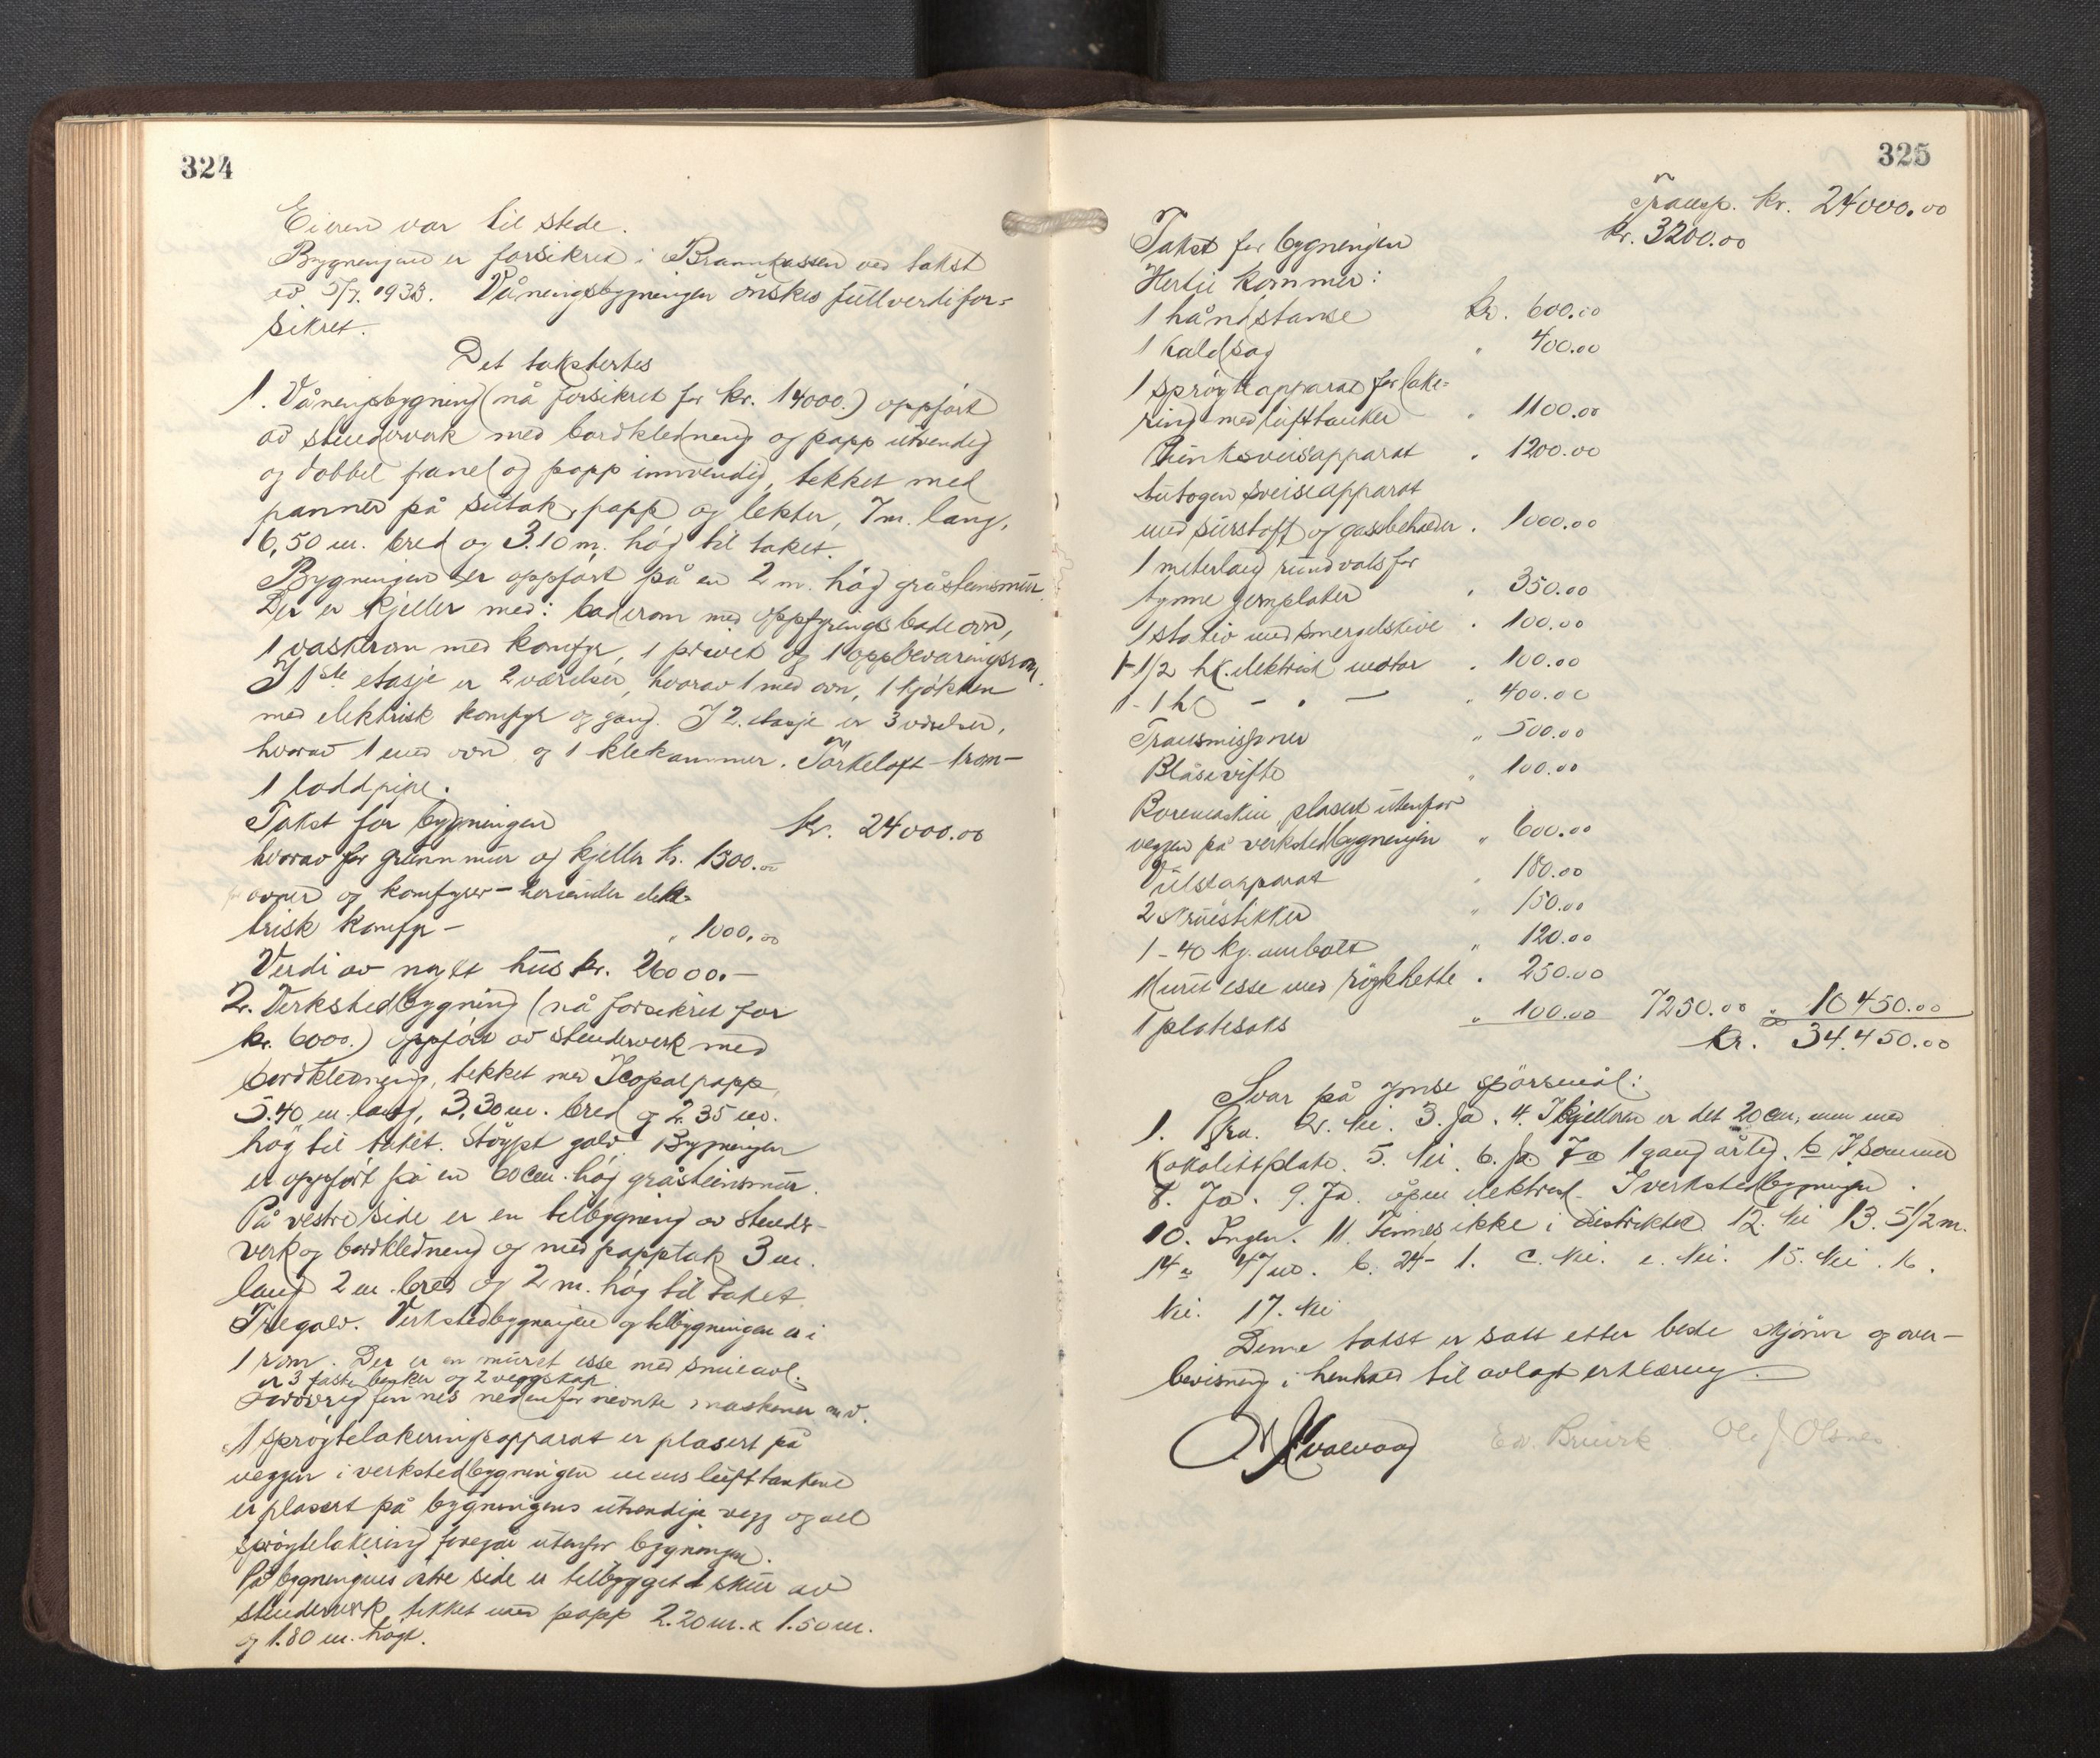 324
Eieren var til stede.
Bygningene er forsikret i Brannkassen ved takst
av 5/7. 1938. Våningsbygningen önskes fullverdifor-
sikret.
Det takstertes
1. Våningsbygning (nå forsikret for kr. 14000.) oppfört
av stenderverk med bordkledning og papp utvendig
og dobbel panel og papp innvendig, tekket med
panner på sutak, papp og lekter, 7 m. lang,
6,50 m. bred og 3.10 m. hög til taket.
Bygningen er oppfört på en 2 m. hög gråsteinsmur.
Der er kjeller med: baderom med oppfyringsbadeovn,
1 vaskerom med komfyr, 1 privet og 1 oppbevaringsrom.
I 1ste etasje er 2 værelser, hvorav 1 med ovn, 1 kjökken
med elektrisk komfyr og gang. I 2. etasje er 3 værelser,
hvorav 1 med ovn og 1 klekammer. Törkeloft - 1 rom -
1 loddpipe.
Takst for bygningen kr. 24000.00
hvorav for grunnmur og kjeller kr. 1300.00
for ovner og komfyrer - herunder elek-
trisk komfyr - " 1000.00
Verdi av nytt hus kr. 26000.-
2. Verkstedbygning (nå forsikret for
kr. 6000.) oppfört av stenderverk med
bordkledning, tekket med Icopalpapp,
5.40 m. lang, 3.30 m. bred og 2.35 m.
hög til taket. Stöypt golv. Bygningen
er oppfört på en 60 cm. hög gråsteinsmur.
På vestre side er en tilbygning av stender-
verk og bordkledning og med papptak 3 m.
lang 2 m. bred og 2 m. hög til taket
Tregolv. Verkstedbygningen og tilbygningen er i
1 rom. Der er en muret esse med smieavl.
er 3 faste benker og 2 veggskap
Forövrig finnes nedenfor nevnte maskiner m.v.
1 spröytelakeringsapparat er plasert på
veggen i verkstedbygningen mens lufttankene
er plasert på bygningens utvendige vegg og all
spröytelakering foregår utenfor bygningen.
På bygningens östre side er tilbygget 1 skur av
stenderverk tekket med papp 2.20 m. x 1.50 m.
og 1.80 m. högt.
325
Transp. kr. 24000.00
Takst for bygningen kr. 3200.00
Hertil kommer:
1 håndstanse kr. 600.00
1 kaldsag " 400.00
1 spröyteapparat for lake-
ring med lufttanker " 1100.00
Punktsveisapparat " 1200.00
autogen sveiseapparat
med surstoff og gassbeholder " 1000.00
1 meterlang rundvals for
tynne jernplater " 350.00
1 stativ med smergelskive " 100.00
1 - 1/2 hk. elektrisk motor " 100.00
1 - 1 hk - " - " 400.00
Transmisjoner " 500.00
Blåsevifte " 100.00
Boremaskin, plasert utenfor
veggen på verkstedbygningen " 600.00
Vulstapparat " 180.00
2 skruestikker " 150.00
1 - 40 kg. ambolt " 120.00
Muret esse med röykhette " 250.00
1 platesaks " 100.00 7250.00 " 10450.00
kr. 34.450.00
Svar på ymse spörsmål:
1. Bra. 2. Nei. 3. Ja. 4. I kjelleren er det 20 cm. mur med
kokolittplate. 5. Nei. 6. Ja. 7a 1 gang årlig. b I sommer
8. Ja. 9. Ja. åpen elektrisk. I verkstedbygningen.
10. Ingen. 11. Finnes ikke i distriktet 12. Nei 13. 5 1/2 m.
14 a 47 m. b. 24 - 1. c. Nei. e. Nei. 15. Nei. 16.
Nei. 17. Nei
Denne takst er satt etter beste skjönn og over-
bevisning i henhold til avlagt erklæring.
Ole J Olsnes